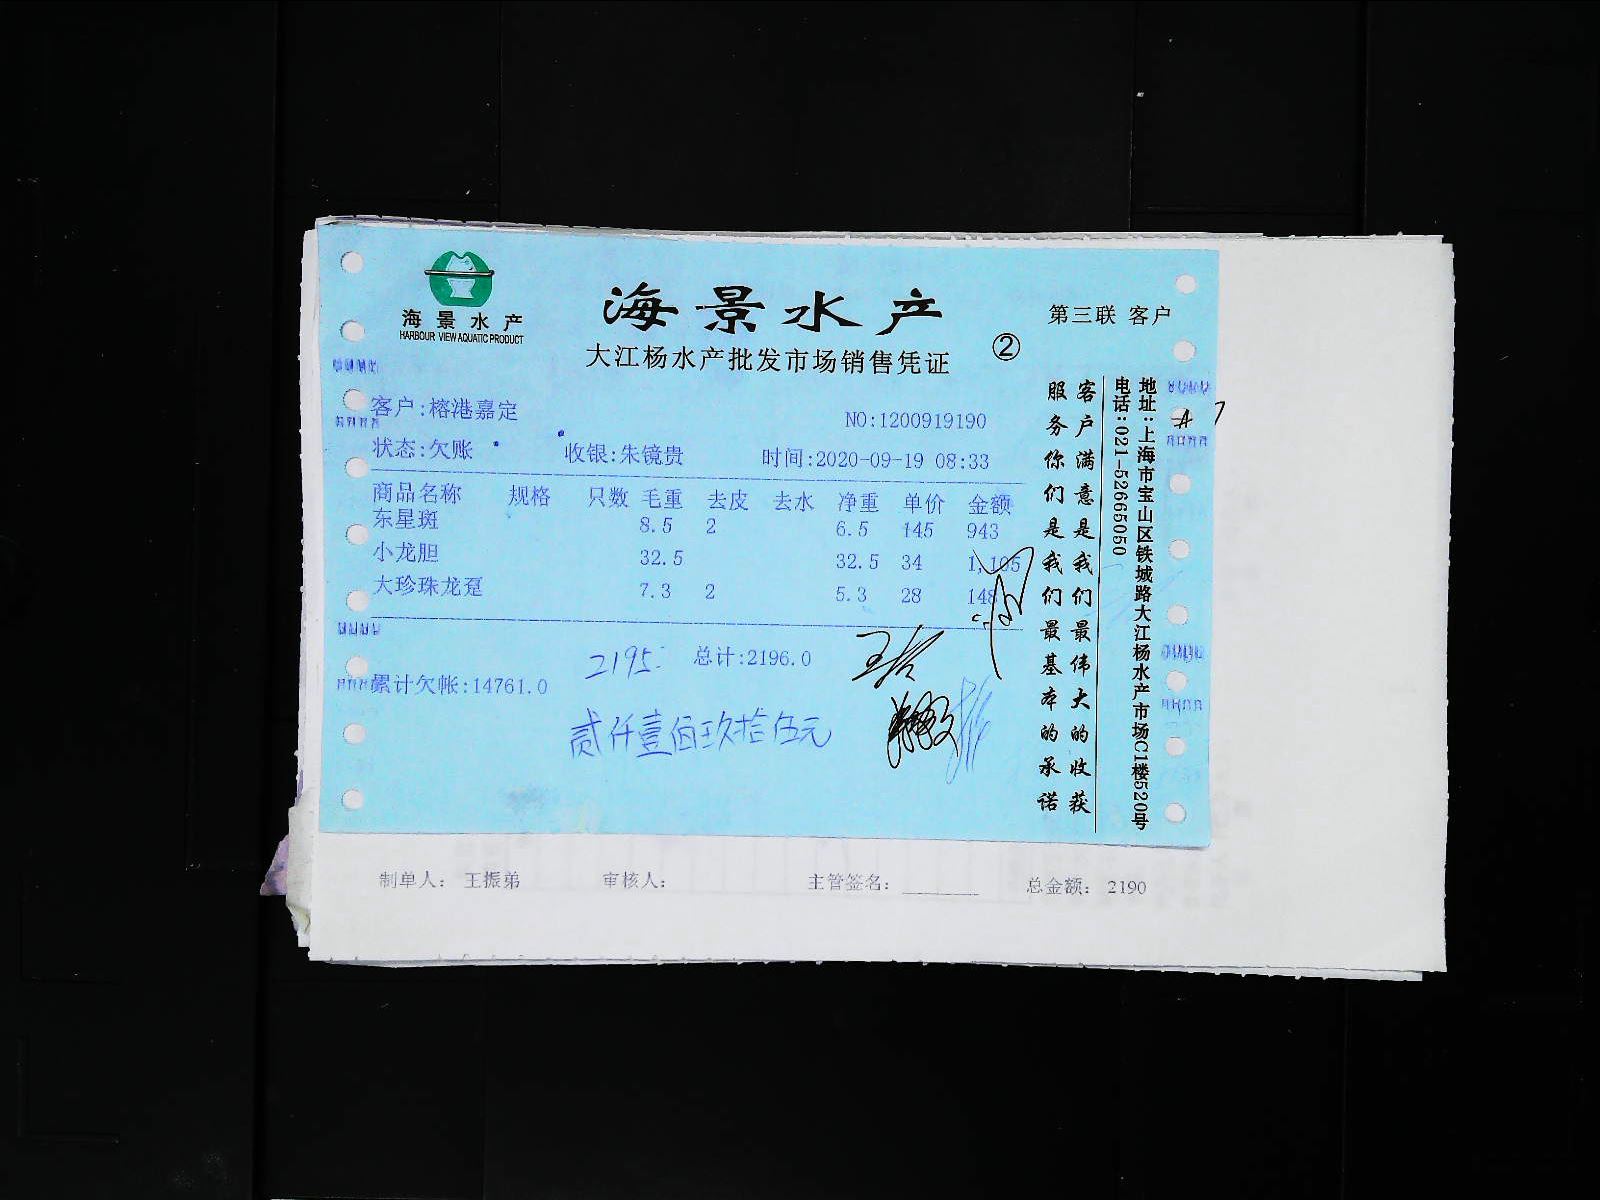 海景水产
HARBOUR VIEW AQUATIC PRODUCT
海景水产
第三联 客户
大江杨水产批发市场销售凭证
②
客户:榕港嘉定
NO:1200919190
状态:欠账 收银:朱镜贵 时间:2020-09-19 08:33
商品名称 规格 只数 毛重 去皮 去水 净重 单价 金额
东星斑 8.5 2 6.5 145 943
小龙胆 32.5 32.5 34 1,105
大珍珠龙趸 7.3 2 5.3 28 148
2195 总计:2196.0
累计欠帐:14761.0
贰仟壹佰玖拾伍元
客户满意是我们最伟大的收获
服务你们是我们最基本的承诺
地址:上海市宝山区铁城路大江杨水产市场C1楼520号
电话:021-52665050
制单人: 王振弟 审核人: 主管签名: 总金额: 2190